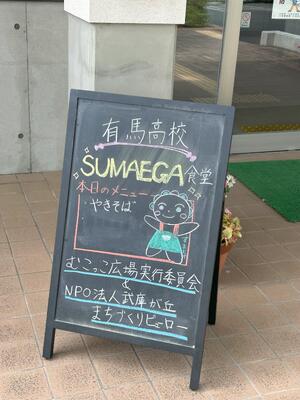 有馬高校
SUMAEGA食堂
本日のメニュー
・やきそば
むこっこ広場実行委員会
&
NPO法人武庫が丘
まちづくりビューロー